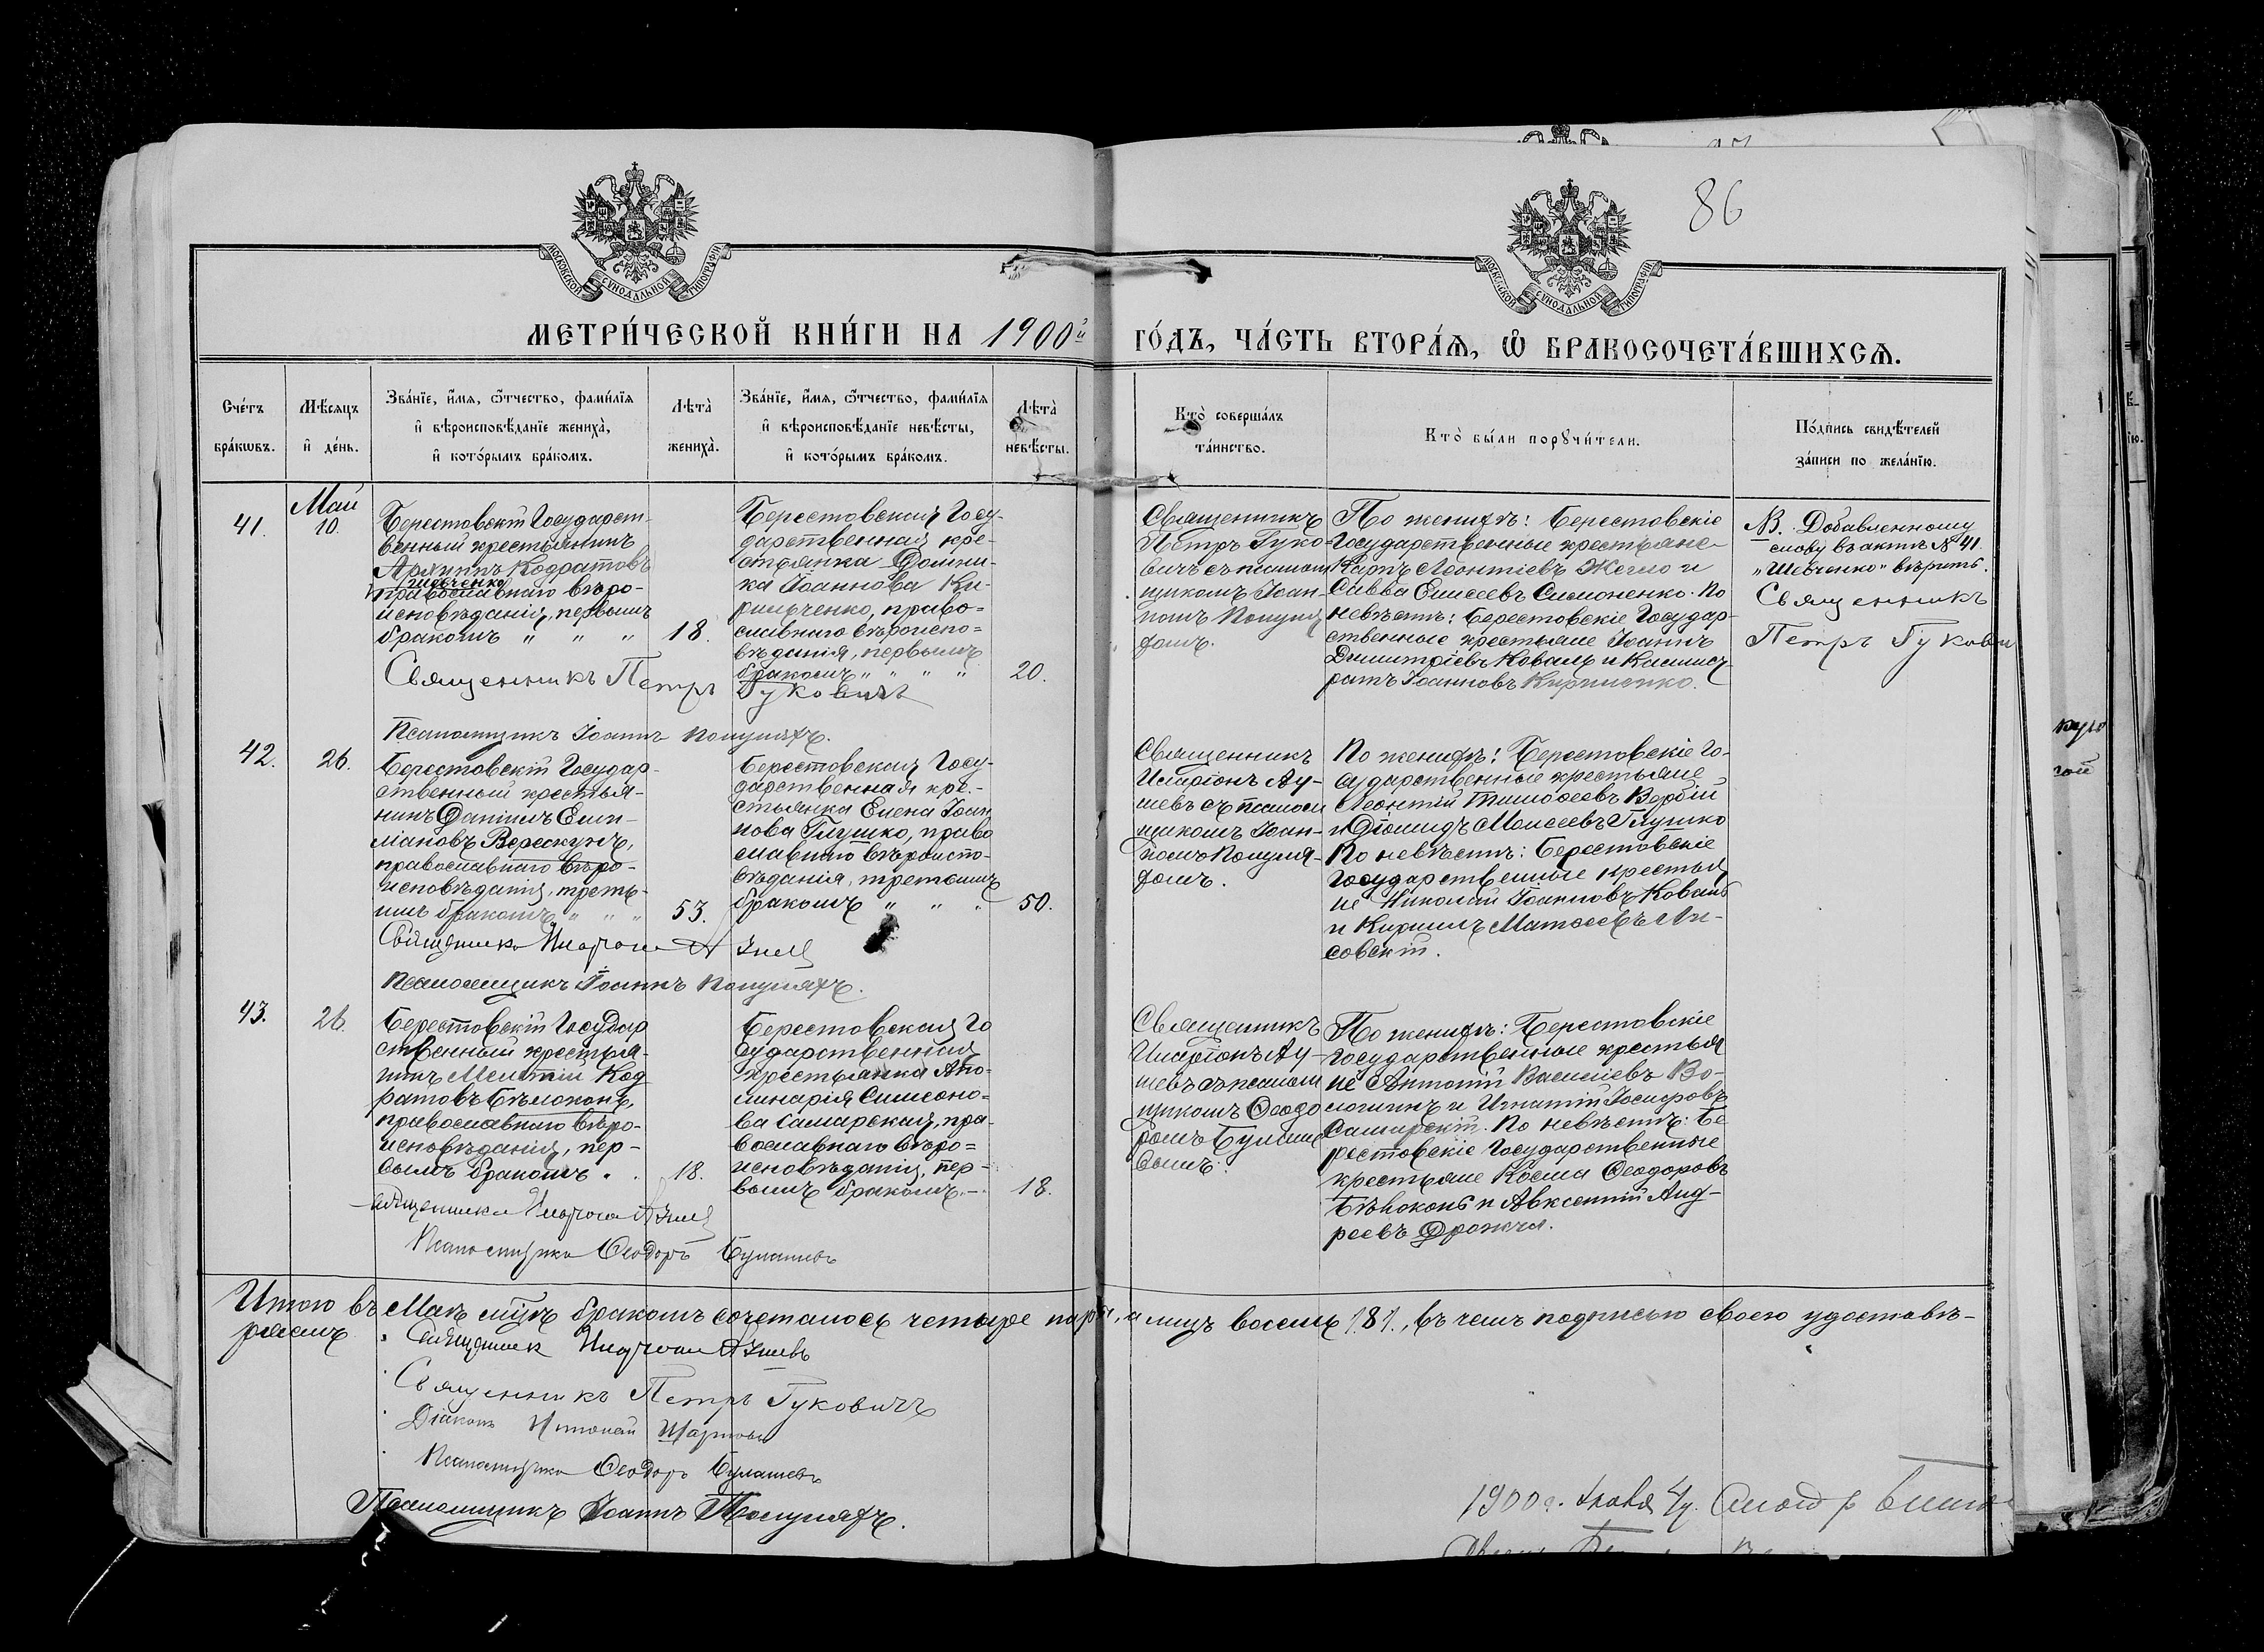 86
МОСКОВСКОЙ СУНОДАЛЬНОЙ ТИПОГРАФІИ
МОСКОВСКОЙ СУНОДАЛЬНОЙ ТИПОГРАФІИ
МЕТРИ́ЧЕСКОЙ КНИ́ГИ НА 1900й ГО́ДЪ, ЧА́СТЬ ВТОРА́Ѧ, Ѽ БРАКОСОЧЕТА́ВШИХСѦ.
Сче́тъ
бра́кѡвъ.
Мѣ́сяцъ
и҆ де́нь.
Зва́нїе, и҆́мѧ, ѻ҆́тчество, фами́лїѧ
и҆ вѣроисповѣ́данїе жениха̀,
и҆ кото́рымъ бра́комъ.
Лѣта̀
жениха̀.
Зва́нїе, и҆́мѧ, ѻ҆́тчество, фами́лїѧ
и҆ вѣроисповѣ́данїе невѣ́сты,
и҆ кото́рымъ бра́комъ.
Лѣта̀
невѣ́сты.
Кто̀ соверша́лъ
та́инство.
Кто̀ бы́ли порꙋчи́тели.
По́дпись свидѣ́телей
за́писи по жела́нїю.
41.
Май
10.
Берестовскій Государст-
венный крестьянинъ
Архиппъ Кодратовъ
Шевченко
православнаго вѣро-
исповѣданія, первымъ
бракомъ " " "
18.
Берестовская Госу-
дарственная кре-
стьянка Домни-
ка Іоаннова Ки-
риченко, право=
славнаго вѣроиспо=
вѣданія, первымъ
бракомъ " " " "
20.
Священникъ
Петръ Гуко-
вичъ съ псалом
щикомъ Іоан-
номъ Популя
домъ.
По женихѣ: Берестовскіе
Государственные крестьяне
Карпъ Леонтіевъ Жегло и
Савва Елисеевъ Симоненко. По
невѣстѣ: Берестовскіе Государ-
ственные крестьяне Іоаннъ
Димитріевъ Коваль и
Іоанновъ Кириченко.
NB. Добавленному
слову въ актѣ № 41.
„Шевченко" вѣрить.
Священникъ
Петръ Гукови
Священникъ Петръ Гуковичъ
Псаломщикъ Іоаннъ
42.
26.
Берестовскій Государ-
ственный крестья-
нинъ Даніилъ Емил-
іановъ Верескунъ,
православнаго вѣро-
исповѣданія, треть-
имъ бракомъ " " "
53.
Берестовская Госу-
дарственная кре-
стьянка Елена Іоан
нова Глушко, право
славнаго вѣроиспо-
вѣданія, третьимъ
бракомъ " " "
50.
Священникъ
Иларіонъ
съ псалом
щикомъ Іоан-
номъ Популя-
домъ.
По женихѣ: Берестовскіе Го-
сударственные крестьяне
Леонтій Тимоѳеевъ Вербій
и Діомидъ Моисеевъ Глушко
По невѣстѣ: Берестовскіе
Государственные крестья
не Николай Іоанновъ Коваль
и Кириллъ Матѳеевъ Ли-
совскій.
Псаломщикъ Іоаннъ
43.
26.
Берестовскій Государ
ственный крестья-
нинъ Мелетій Код
ратовъ Бѣлоконь,
православнаго вѣро-
исповѣданія, пер-
вымъ бракомъ
18.
Берестовская Го
сударственная
крестьянка Апо-
линарія Симеоно-
ва Самарская, пра-
вославнаго вѣро=
исповѣданія, пер-
вымъ бракомъ.-
18.
Священникъ
Иларіонъ
съ псалом
щикомъ Ѳеодо
ромъ Булаше
вымъ.
По женихѣ: Берестовскіе
Государственные крестья
не Антоній Василіевъ Во-
и Игнатій
Самарскій. По невѣстѣ: Бе
рестовскіе Государственные
крестьяне Косма Ѳеодоровъ
Бѣлоконь и Авксентій Анд-
реевъ Дрожча.
Псаломщикъ Ѳеодоръ Булашевъ
Итого въ Маѣ мѣсяцѣ бракомъ сочеталось четыре пары, а лицъ восемь /8/., въ чемъ подписью своею удостовѣ-
ряемъ
Священникъ Иларіонъ
Священникъ Петръ Гуковичъ
Діаконъ
Псаломщикъ Ѳеодоръ Булашевъ
Псаломщикъ Іоаннъ
1900 г.